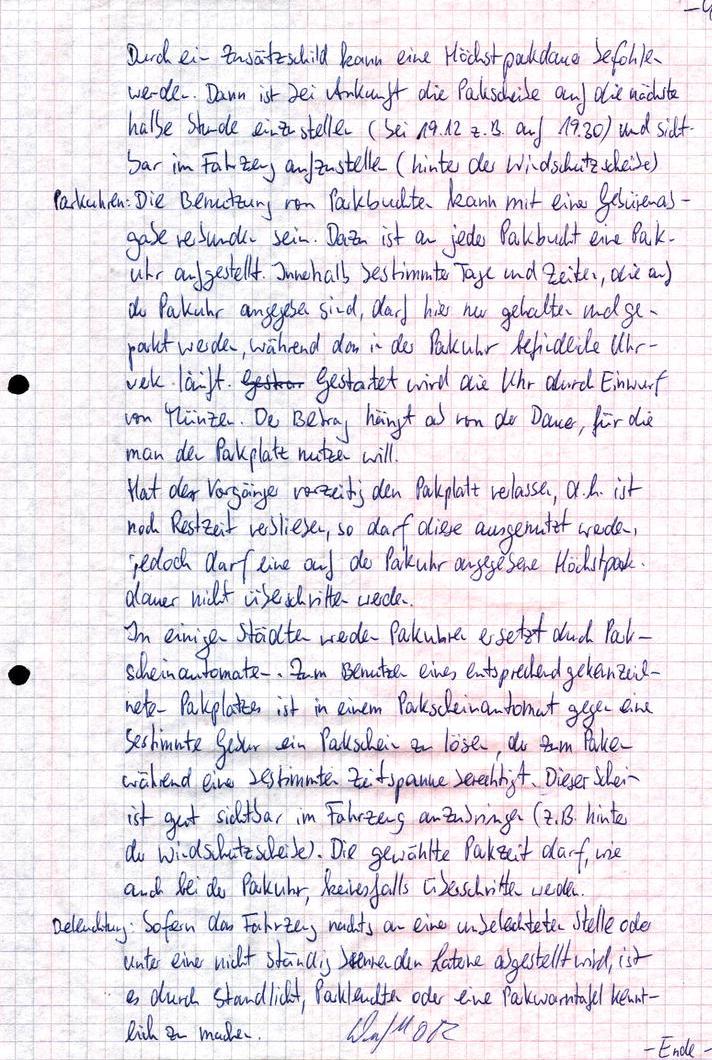 -4
Durch ein Zusatzschild kann eine Höchstparkdauer befohlen
werden. Dann ist bei Ankunft die Parkscheibe auf die nächste
halbe Stunde einzustellen (bei 19.12 z.B. auf 19.30) und sicht-
bar im Fahrzeug aufzustellen (hinter der Windschutzscheibe)
Parkuhren: Die Benutzung von Parkbuchten kann mit einer Gebührenab-
gabe verbunden sein. Dazu ist an jeder Parkbucht eine Park-
uhr aufgestellt. Innerhalb bestimmter Tage und Zeiten, die auf
der Parkuhr angegeben sind, darf hier nur gehalten und ge-
parkt werden, während das in der Parkuhr befindliche Uhr-
werk läuft. Gestartet wird die Uhr durch Einwurf
von Münzen. Der Betrag hängt ab von der Dauer, für die
man den Parkplatz nutzen will.
Hat der Vorgänger vorzeitig den Parkplatz verlassen, d.h. ist
noch Restzeit verblieben, so darf diese ausgenutzt werden,
jedoch darf eine auf der Parkuhr angegebene Höchstpark-
dauer nicht überschritten werden.
In einigen Städten werden Parkuhren ersetzt durch Park-
scheinautomaten. Zum Benutzen eines entsprechend gekennzeich-
neten Parkplatzes ist in einem Parkscheinautomat gegen eine
bestimmte Gebühr ein Parkschein zu lösen, der zum Parken
während einer bestimmten Zeitspanne berechtigt. Dieser Schein
ist gut sichtbar im Fahrzeug anzubringen (z.B. hinter
der Windschutzscheibe). Die gewählte Parkzeit darf, wie
auch bei der Parkuhr, keinesfalls überschritten werden.
Beleuchtung: Sofern das Fahrzeug nachts an einer unbeleuchteten Stelle oder
unter einer nicht ständig brennenden Laterne abgestellt wird, ist
es durch Standlicht, Parkleuchten oder eine Parkwarntafel kennt-
lich zu machen.
-Ende-